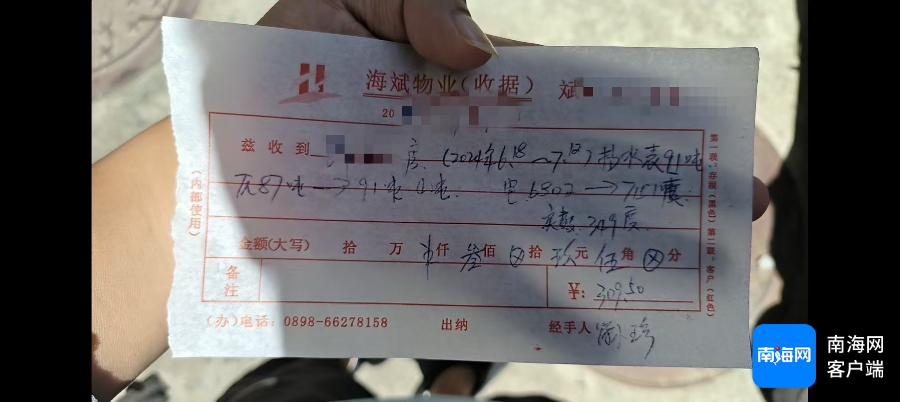 海斌物业(收据) 斌
20
兹收到 房(2024年6.18~7.18)抄水表91吨
底87吨→91吨 4吨. 电6802→7151度.
实数:349度.
金额(大写) 拾 万 仟 叁佰 ⊗拾 玖元 伍角 ⊗分
备注 ¥: 309.50
(办)电话: 0898-66278158 出纳 经手人
(内部使用)
第一联:存根(黑色) 第二联:客户(红色)
南海网
南海网
客户端